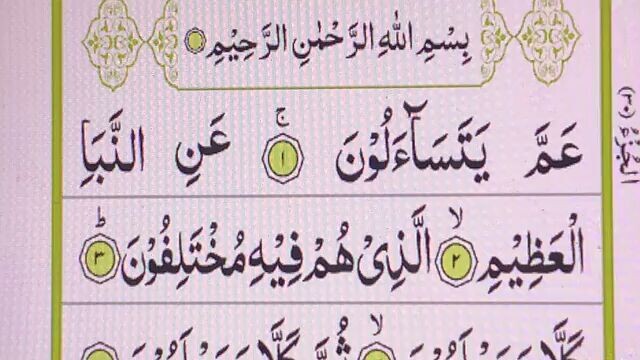 بِسْمِ اللهِ الرَّحْمٰنِ الرَّحِيْمِ
عَمَّ يَتَسَآءَلُوْنَ ۚ ١ عَنِ النَّبَاِ
الْعَظِيْمِ ۙ ٢ الَّذِىْ هُمْ فِيْهِ مُخْتَلِفُوْنَ ؕ ٣
الجزء (٣٠)